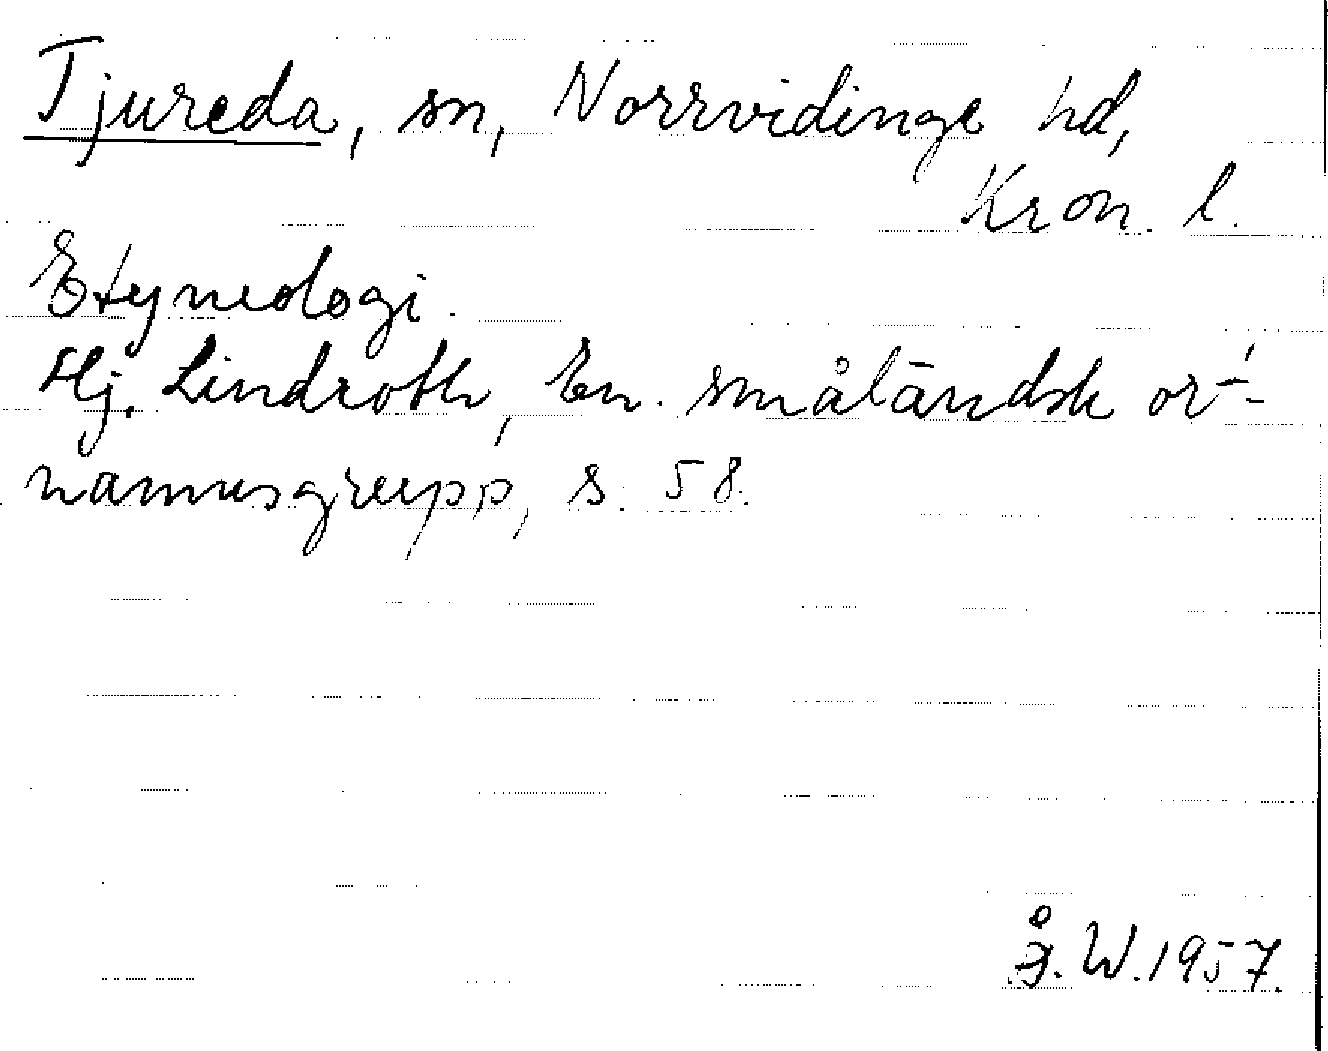 Tjureda, sn, Norrvidinge hd,
Kron. l.
Etymologi.
Hj. Lindroth, En småländsk ort-
namnsgrupp, s. 58.
Å. W. 1957.